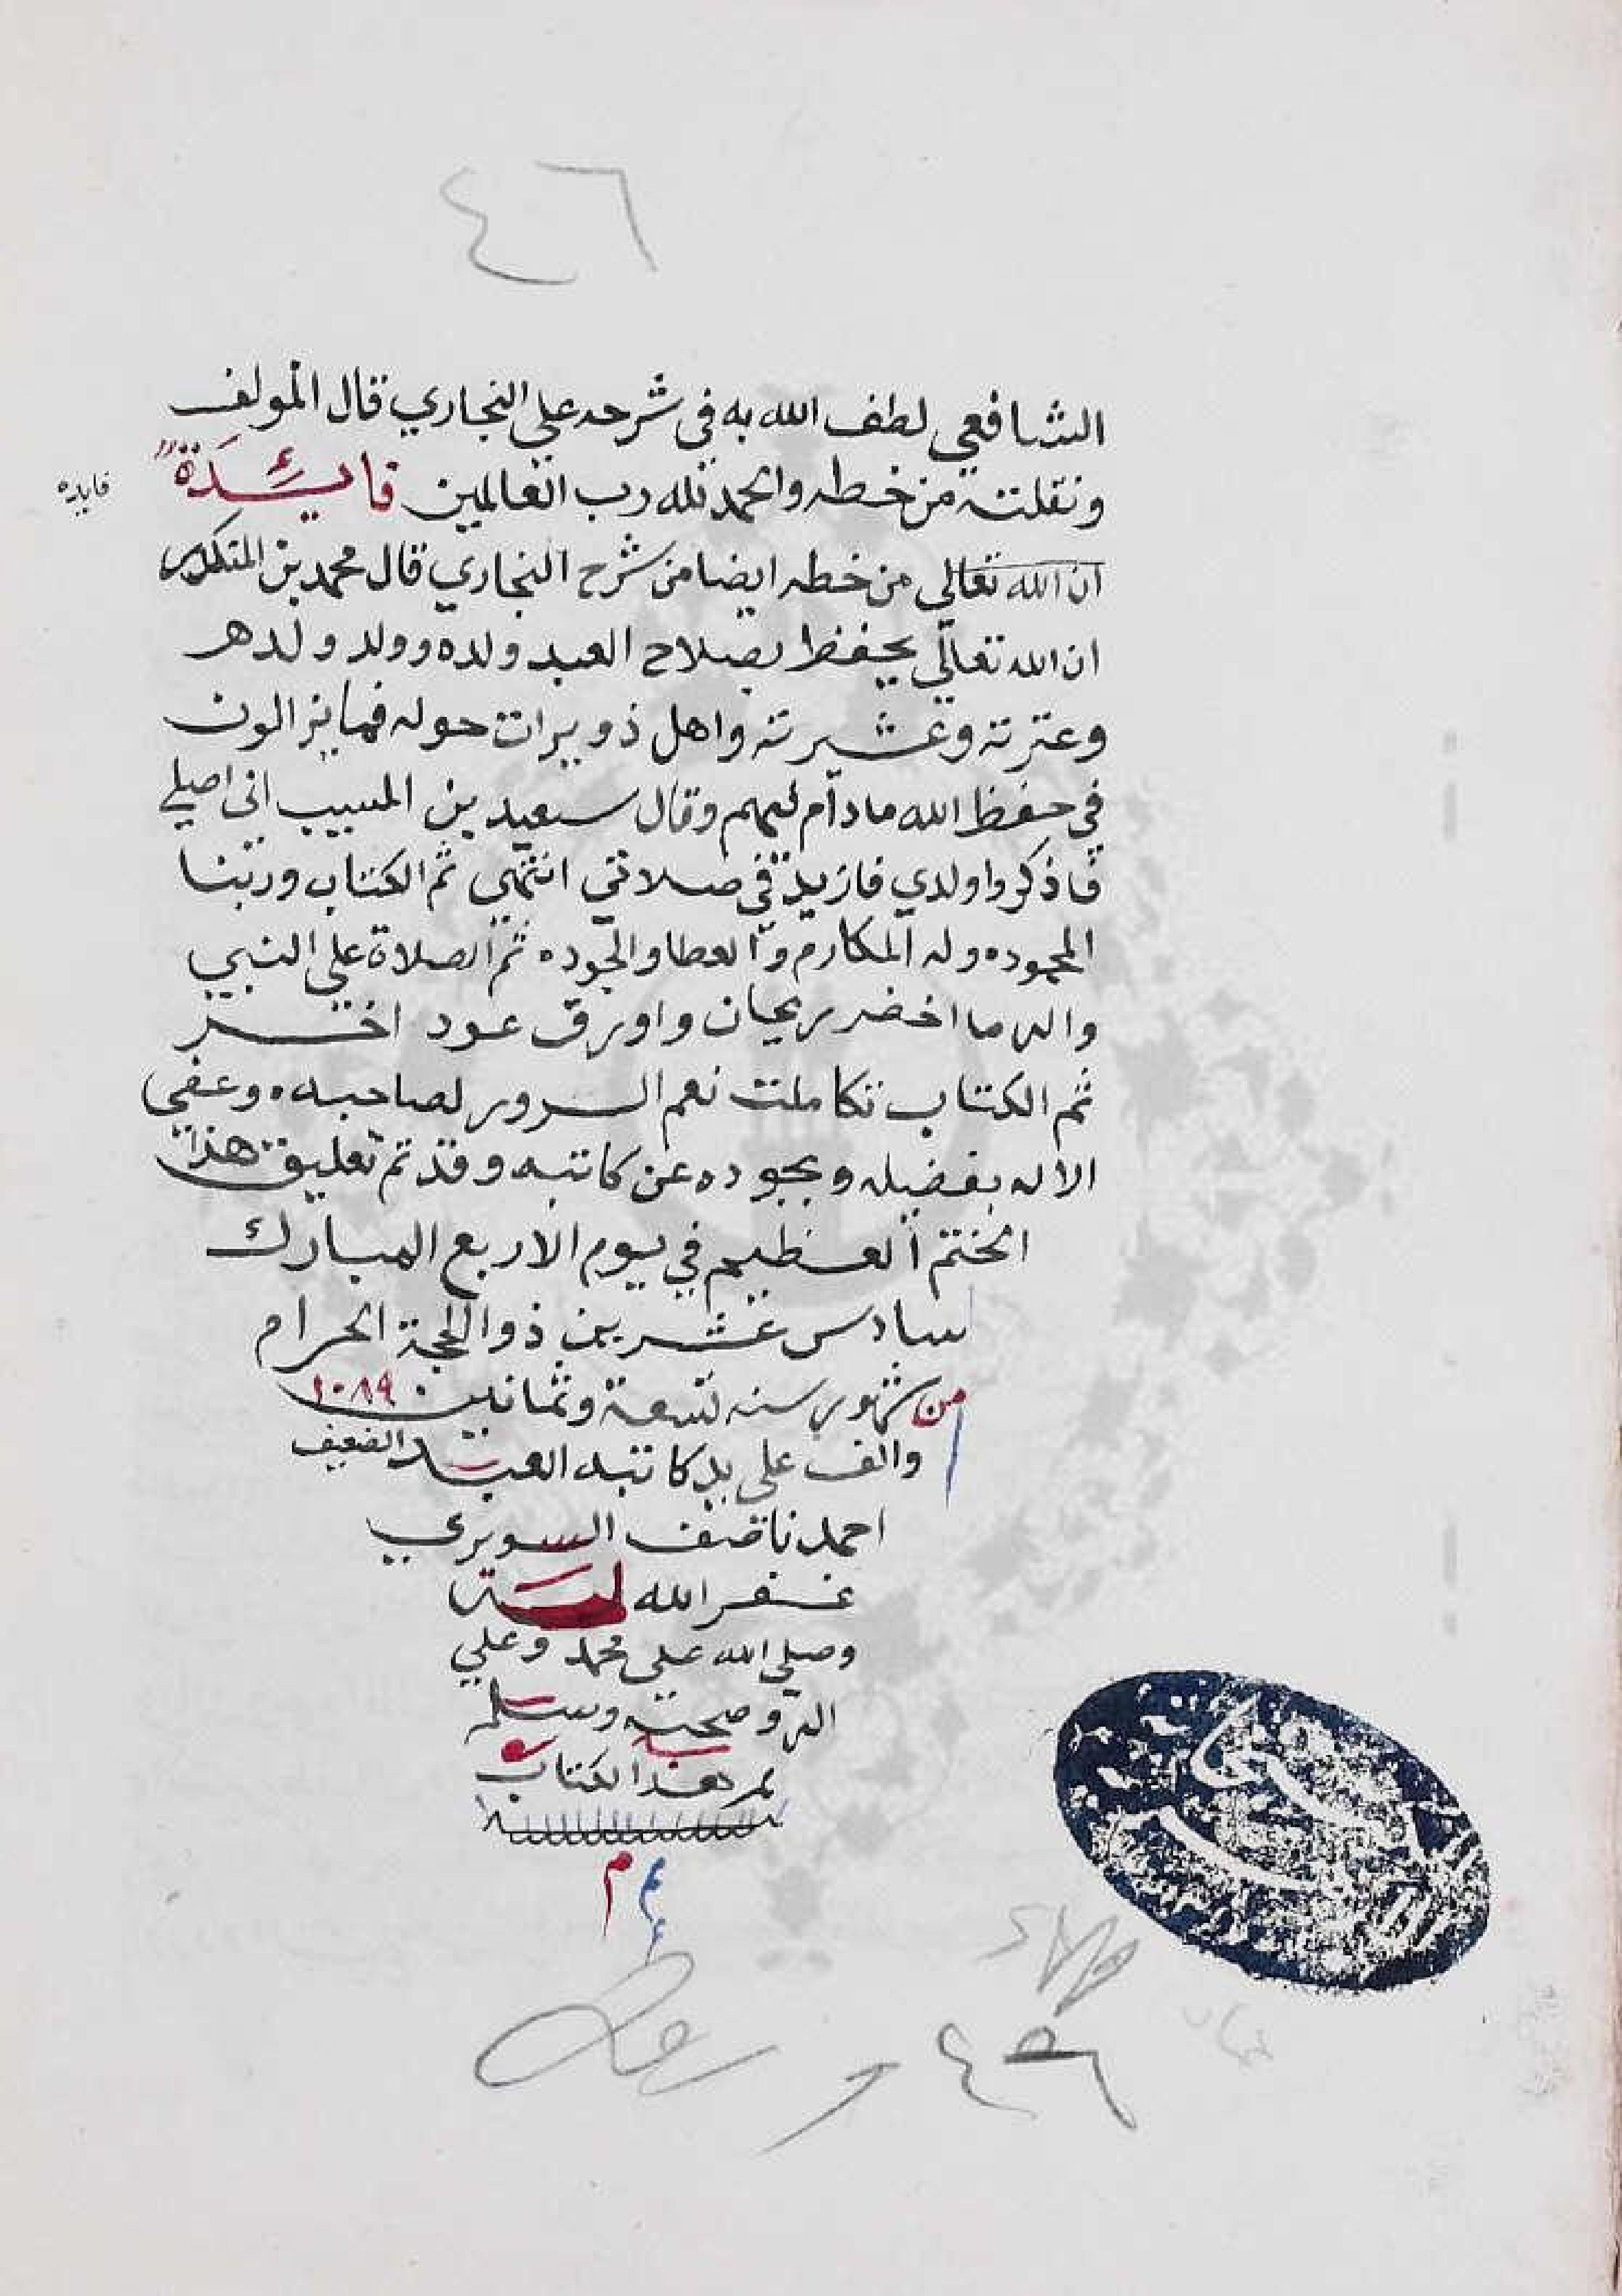 ٤٦
الشافعي لطف الله به في شرحه علي البخاري قال المولف
ونقلته من خطه والحمد لله رب العالمين فايئدة
فايده
ان الله تعالي من خطه ايضا من شرح البخاري قال محمد بن المنكدر
ان الله تعالي يحفظ بصلاح العبد ولده وولد ولده
وعترته وعشيرته واهل ذويرات حوله فما يزالون
في حفظ الله ما دام فيهم وقال سعيد بن المسيب اني اصلي
فاذكر واولدي فازيد في صلاتي انتهي ثم الكتاب وربنا
المحموده وله المكارم والعطا والجوده ثم الصلاة علي النبي
واله ما اخضر ريحان واورق عود اخر
تم الكتاب تكاملت نعم السرور لصاحبه وعفي
الاله بفضله وبجوده عن كاتبه وقد تم تعليق هذا
الختم العظيم في يوم الاربع المبارك
سادس عشرين ذوالحجة الحرام
من شهور سنه تسعة وثمانين ١٠٨٩
والف علي يد كاتبه العبد الضعيف
احمد ناصف السويري
غفر الله له
وصلي الله علي محمد وعلي
اله وصحبه وسلم
تم هذا الكتاب
م
٤٦ ورقه